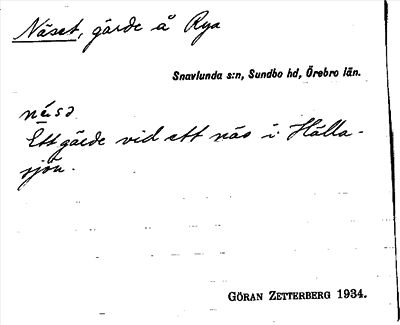 Näset, gärde å Rya
Snavlunda s:n, Sundbo hd, Örebro län.
nésə
Ett gärde vid ett näs i Hålla-
sjön.
GÖRAN ZETTERBERG 1934.